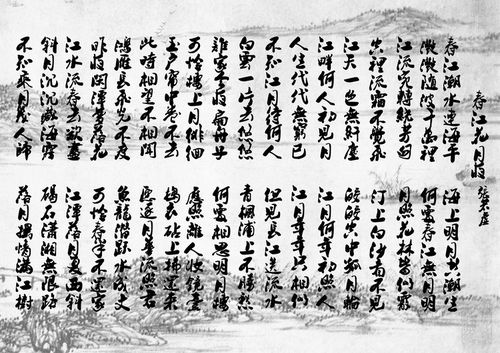 春江花月夜
張若虛
春江潮水連海平
海上明月共潮生
灩灩隨波千萬裡
何處春江無月明
江流宛轉繞芳甸
月照花林皆似霰
空裡流霜不覺飛
汀上白沙看不見
江天一色無纖塵
皎皎空中孤月輪
江畔何人初見月
江月何年初照人
人生代代無窮已
江月年年只相似
不知江月待何人
但見長江送流水
白雲一片去悠悠
青楓浦上不勝愁
誰家今夜扁舟子
何處相思明月樓
可憐樓上月徘徊
應照離人妝鏡臺
玉戶簾中卷不去
搗衣砧上拂還來
此時相望不相聞
願逐月華流照君
鴻雁長飛光不度
魚龍潛躍水成文
昨夜閑潭夢落花
可憐春半不還家
江水流春去欲盡
江潭落月復西斜
斜月沉沉藏海霧
碣石瀟湘無限路
不知乘月幾人歸
落月搖情滿江樹